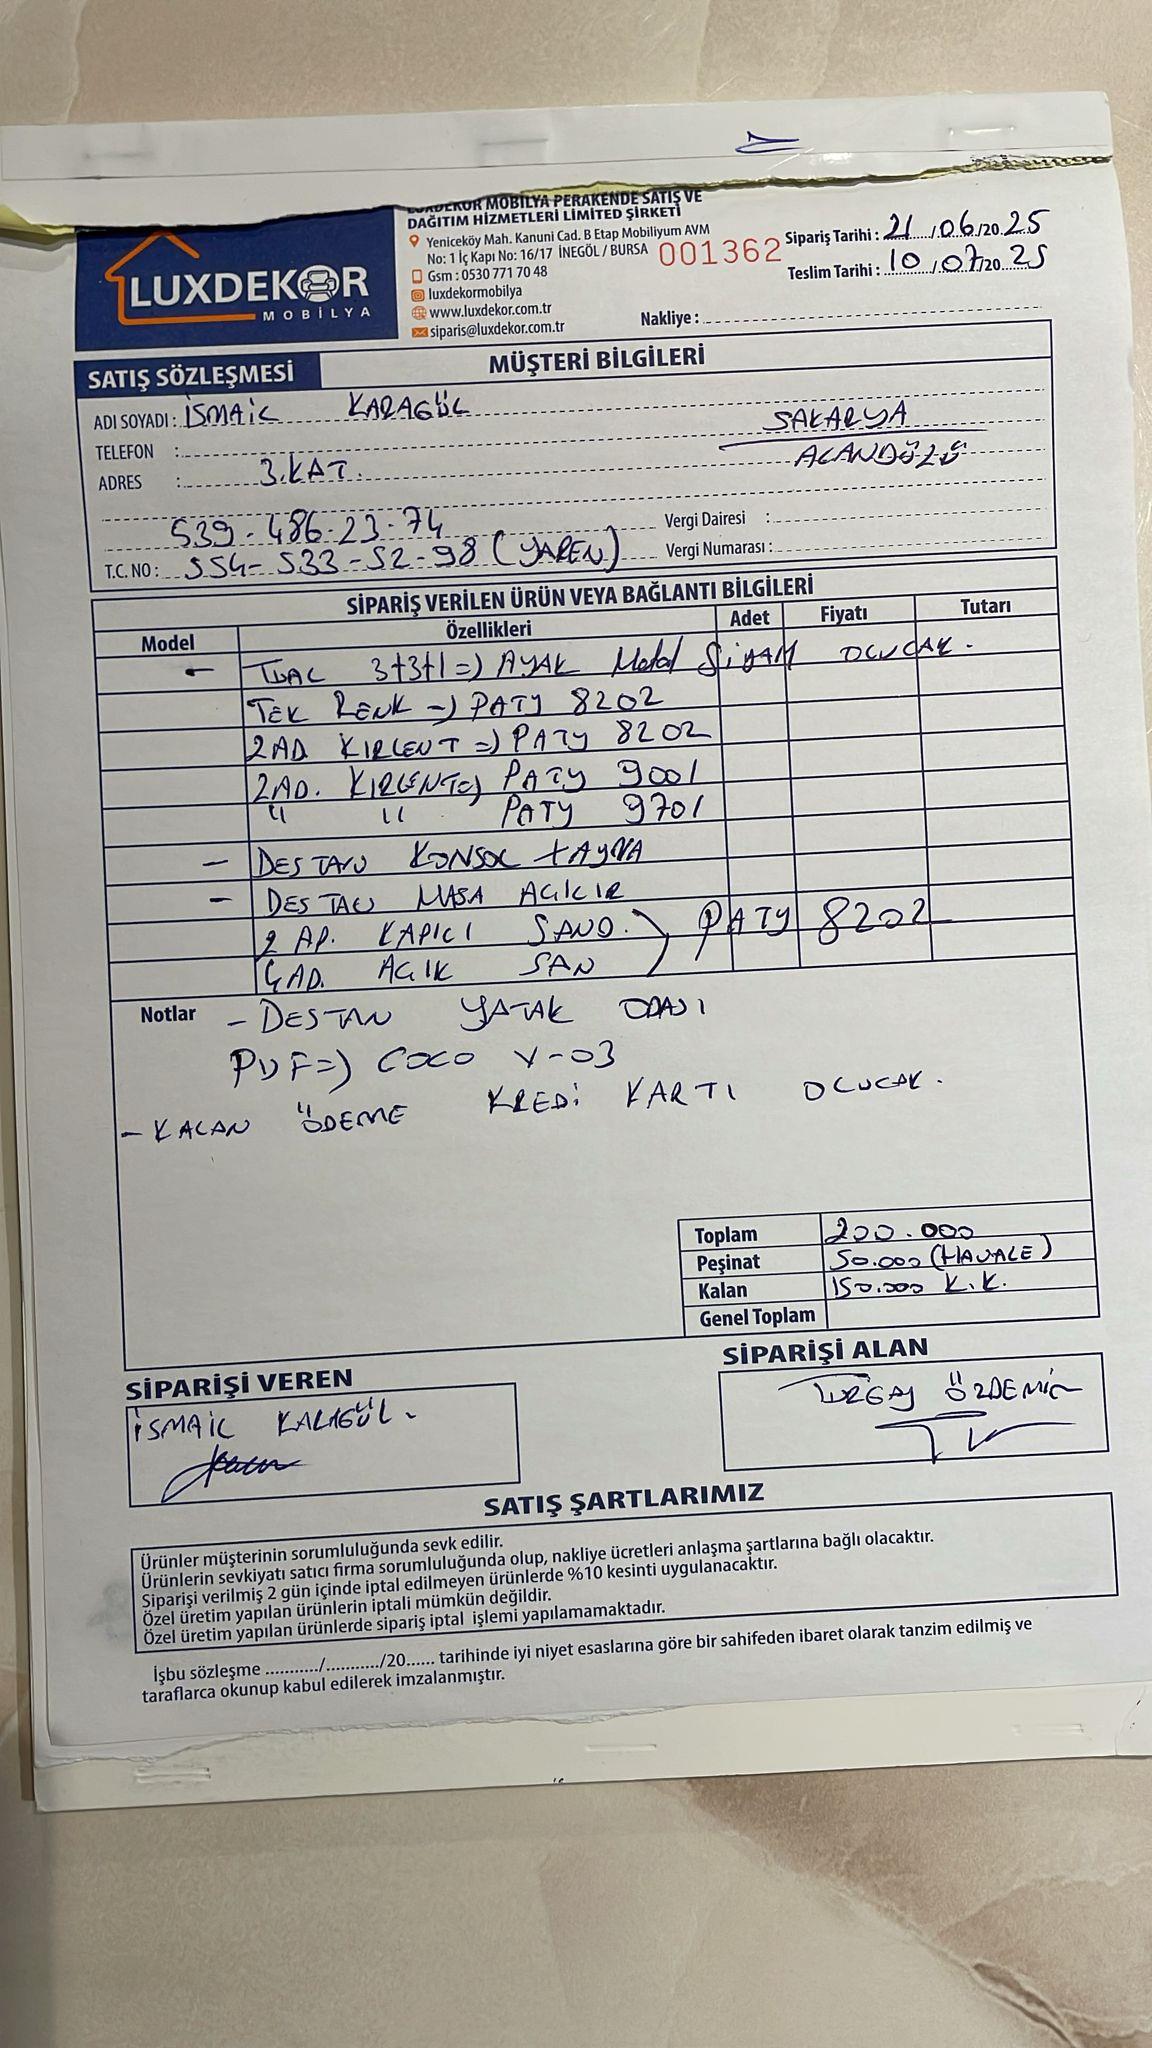 LUXDEKOR MOBİLYA PERAKENDE SATIŞ VE
DAĞITIM HİZMETLERİ LİMİTED ŞİRKETİ
Yeniceköy Mah. Kanuni Cad. B Etap Mobiliyum AVM
No: 1 İç Kapı No: 16/17 İNEGÖL / BURSA
Gsm : 0530 771 70 48
luxdekormobilya
www.luxdekor.com.tr
siparis@luxdekor.com.tr
LUXDEKOR
MOBİLYA
001362
Sipariş Tarihi : 21/06/2025
Teslim Tarihi : 10/07/2025
Nakliye :
SATIŞ SÖZLEŞMESİ
MÜŞTERİ BİLGİLERİ
ADI SOYADI : İSMAİL KARAGÜL
TELEFON :
SAKARYA
ADRES : 3.KAT.
539-486-23-74
Vergi Dairesi :
T.C. NO : 554-533-52-98 (YAREN)
Vergi Numarası :
SİPARİŞ VERİLEN ÜRÜN VEYA BAĞLANTI BİLGİLERİ
Model Özellikleri Adet Fiyatı Tutarı
- 3+3+1 => AYAK Metal SİYAH OLUCAK.
TEK RENK => PATY 8202
2AD. KIRLENT => PATY 8202
2AD. KIRLENT => PATY 9001
" " PATY 9701
- DESTAN KONSOL + AYNA
- DESTAN MASA AÇILIR
2 AD. KAPICI SAND. ) PATY 8202
AÇIK SAN
Notlar - DESTAN YATAK ODASI
=> COCO V-03
- KALAN ÖDEME KREDİ KARTI OLUCAK.
Toplam 200.000
Peşinat 50.000 (HAVALE)
Kalan 150.000 K.K.
Genel Toplam
SİPARİŞİ VEREN
İSMAİL KARAGÜL.
SİPARİŞİ ALAN
TURGAY ÖZDEMİR
SATIŞ ŞARTLARIMIZ
Ürünler müşterinin sorumluluğunda sevk edilir.
Ürünlerin sevkiyatı satıcı firma sorumluluğunda olup, nakliye ücretleri anlaşma şartlarına bağlı olacaktır.
Siparişi verilmiş 2 gün içinde iptal edilmeyen ürünlerde %10 kesinti uygulanacaktır.
Özel üretim yapılan ürünlerin iptali mümkün değildir.
Özel üretim yapılan ürünlerde sipariş iptal işlemi yapılamamaktadır.
İşbu sözleşme .........../.........../20...... tarihinde iyi niyet esaslarına göre bir sahifeden ibaret olarak tanzim edilmiş ve
taraflarca okunup kabul edilerek imzalanmıştır.